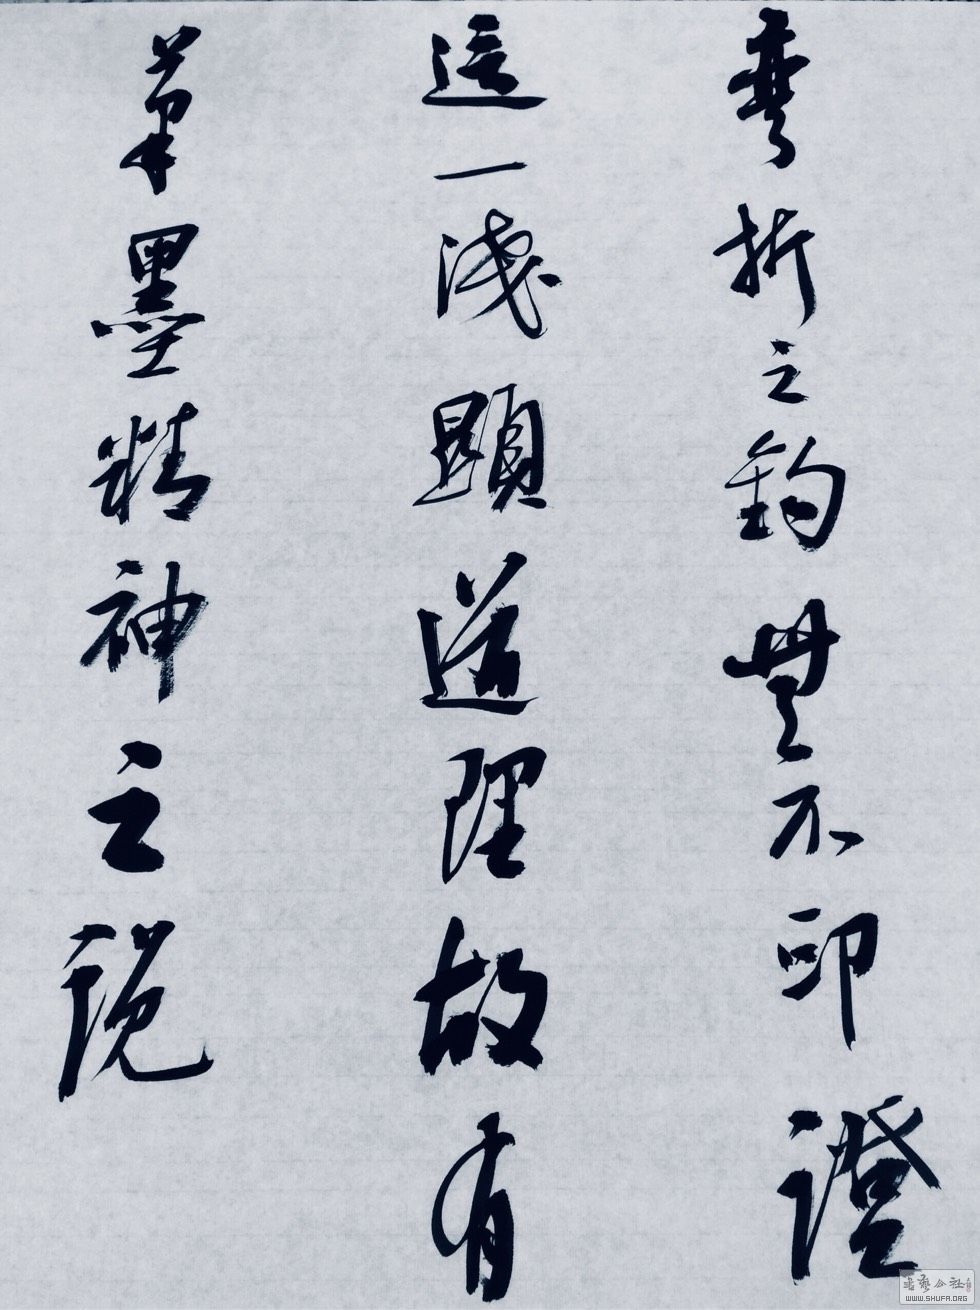 彎折之鈎無不印證
這一淺顯道理故有
筆墨精神之說
書藝公社
WWW.SHUFA.ORG